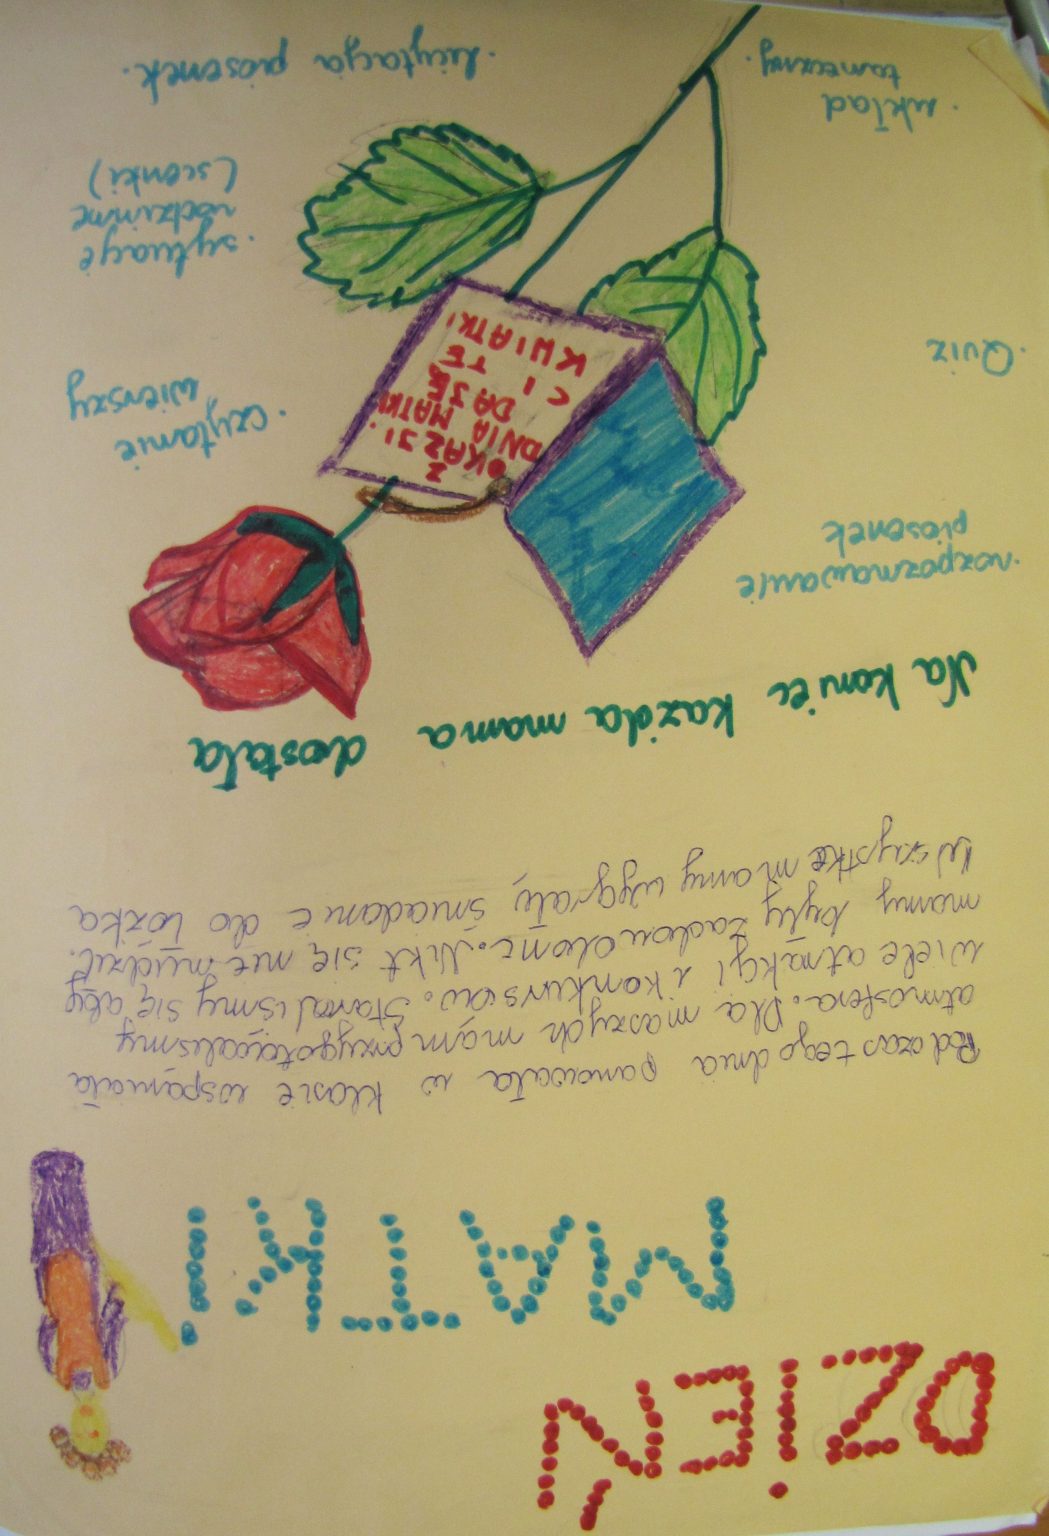 DZiEŃ
MATKi
Podczas tego dnia panowała w klasie wspaniała
atmosfera. Dla naszych mam przygotowaliśmy
wiele atrakcji i konkursów. Staraliśmy się aby
mamy były zadowolone. Nikt się nie nudził.
Wszystke mamy wygrały śniadanie do łóżka
Na koniec każda mama dostała
· rozpoznawanie
piosenek
· Quiz
· układ
taneczny
Z
OKAZJI
DNIA MATKI
DAJĘ
CI TE
KWIATKI
· czytanie
wierszy
· sytuacje
rodzinne
(scenki)
· licytacja piosenek.